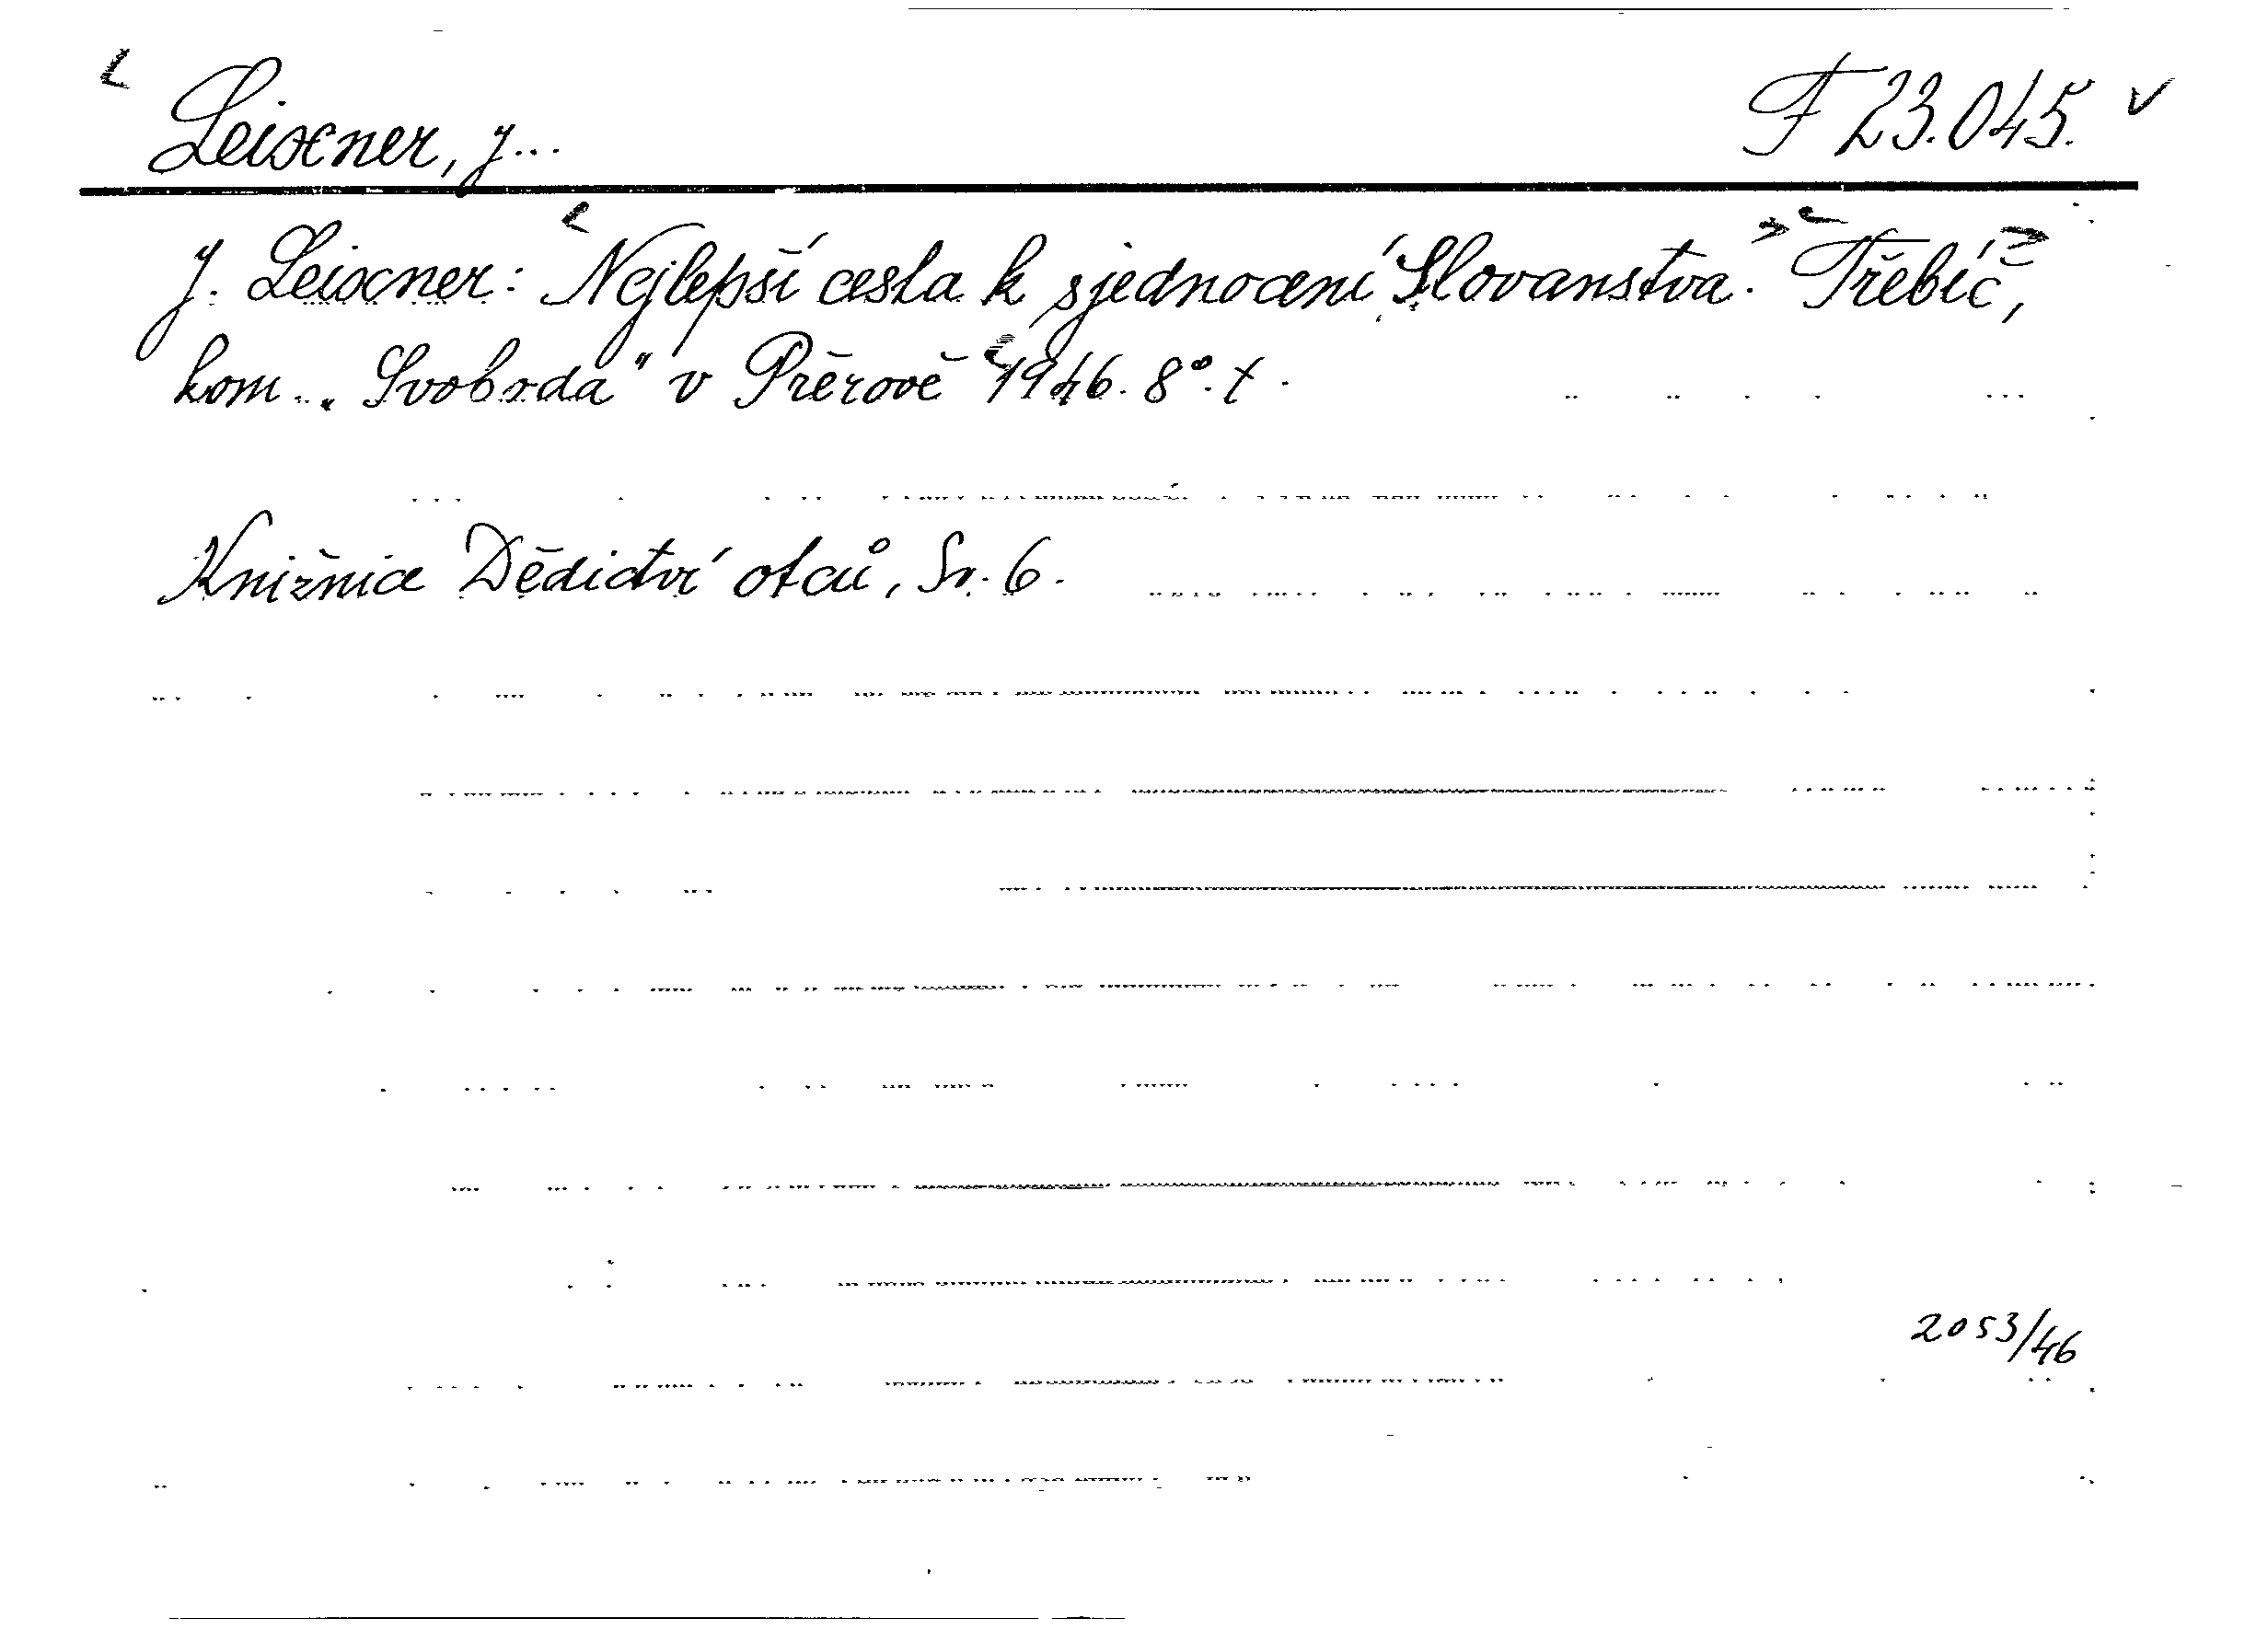 Leixner, J... F 23.045.
J. Leixner: Nejlepší cesta k sjednocení Slovanstva. Třebíč,
kom. „Svoboda" v Přerově 1946. 8°. t.
Knižnice Dědictví otců, Sv. 6.
2053/46